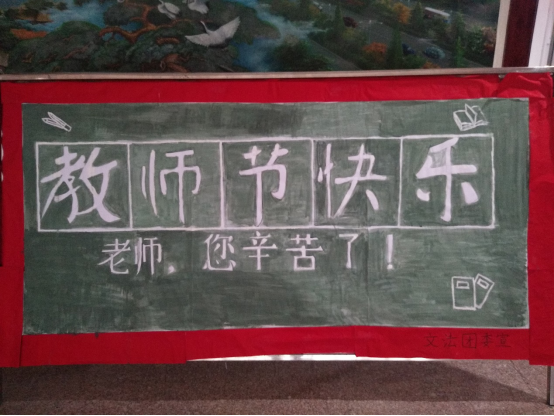 教师节快乐
老师,您辛苦了!
文法团委宣